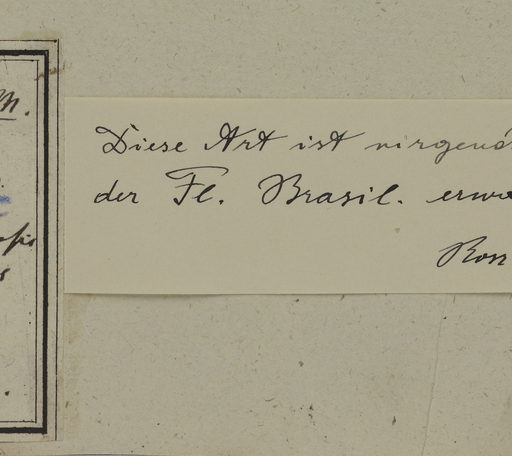 Diese Art ist nirgends
der Fl. Brasil. erwä
Ross